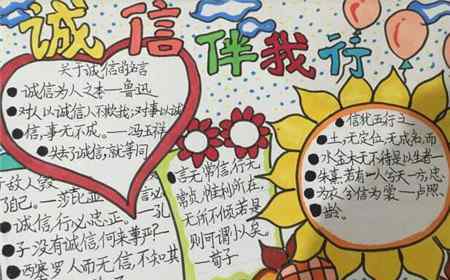 诚信伴我行
关于诚信的名言
诚信为人之本——鲁迅
对人以诚信人不欺我;对事以诚
信,事无不成。——冯玉祥
失去了诚信,就等同
敌人毁
了自己。——莎士比亚 言必
诚信,行必忠正。——孔
子 没有诚信何来尊严——
西塞罗 人而无信,不知其
言无常信,行无
常贞,惟利所在,
无所不倾若是
则可谓小人矣
——荀子
信犹五行之
土,无定位,无成名,而
水金木无不待是以生者—
朱熹 若有人兮天一方,忠
为衣兮信为裳—卢照
龄